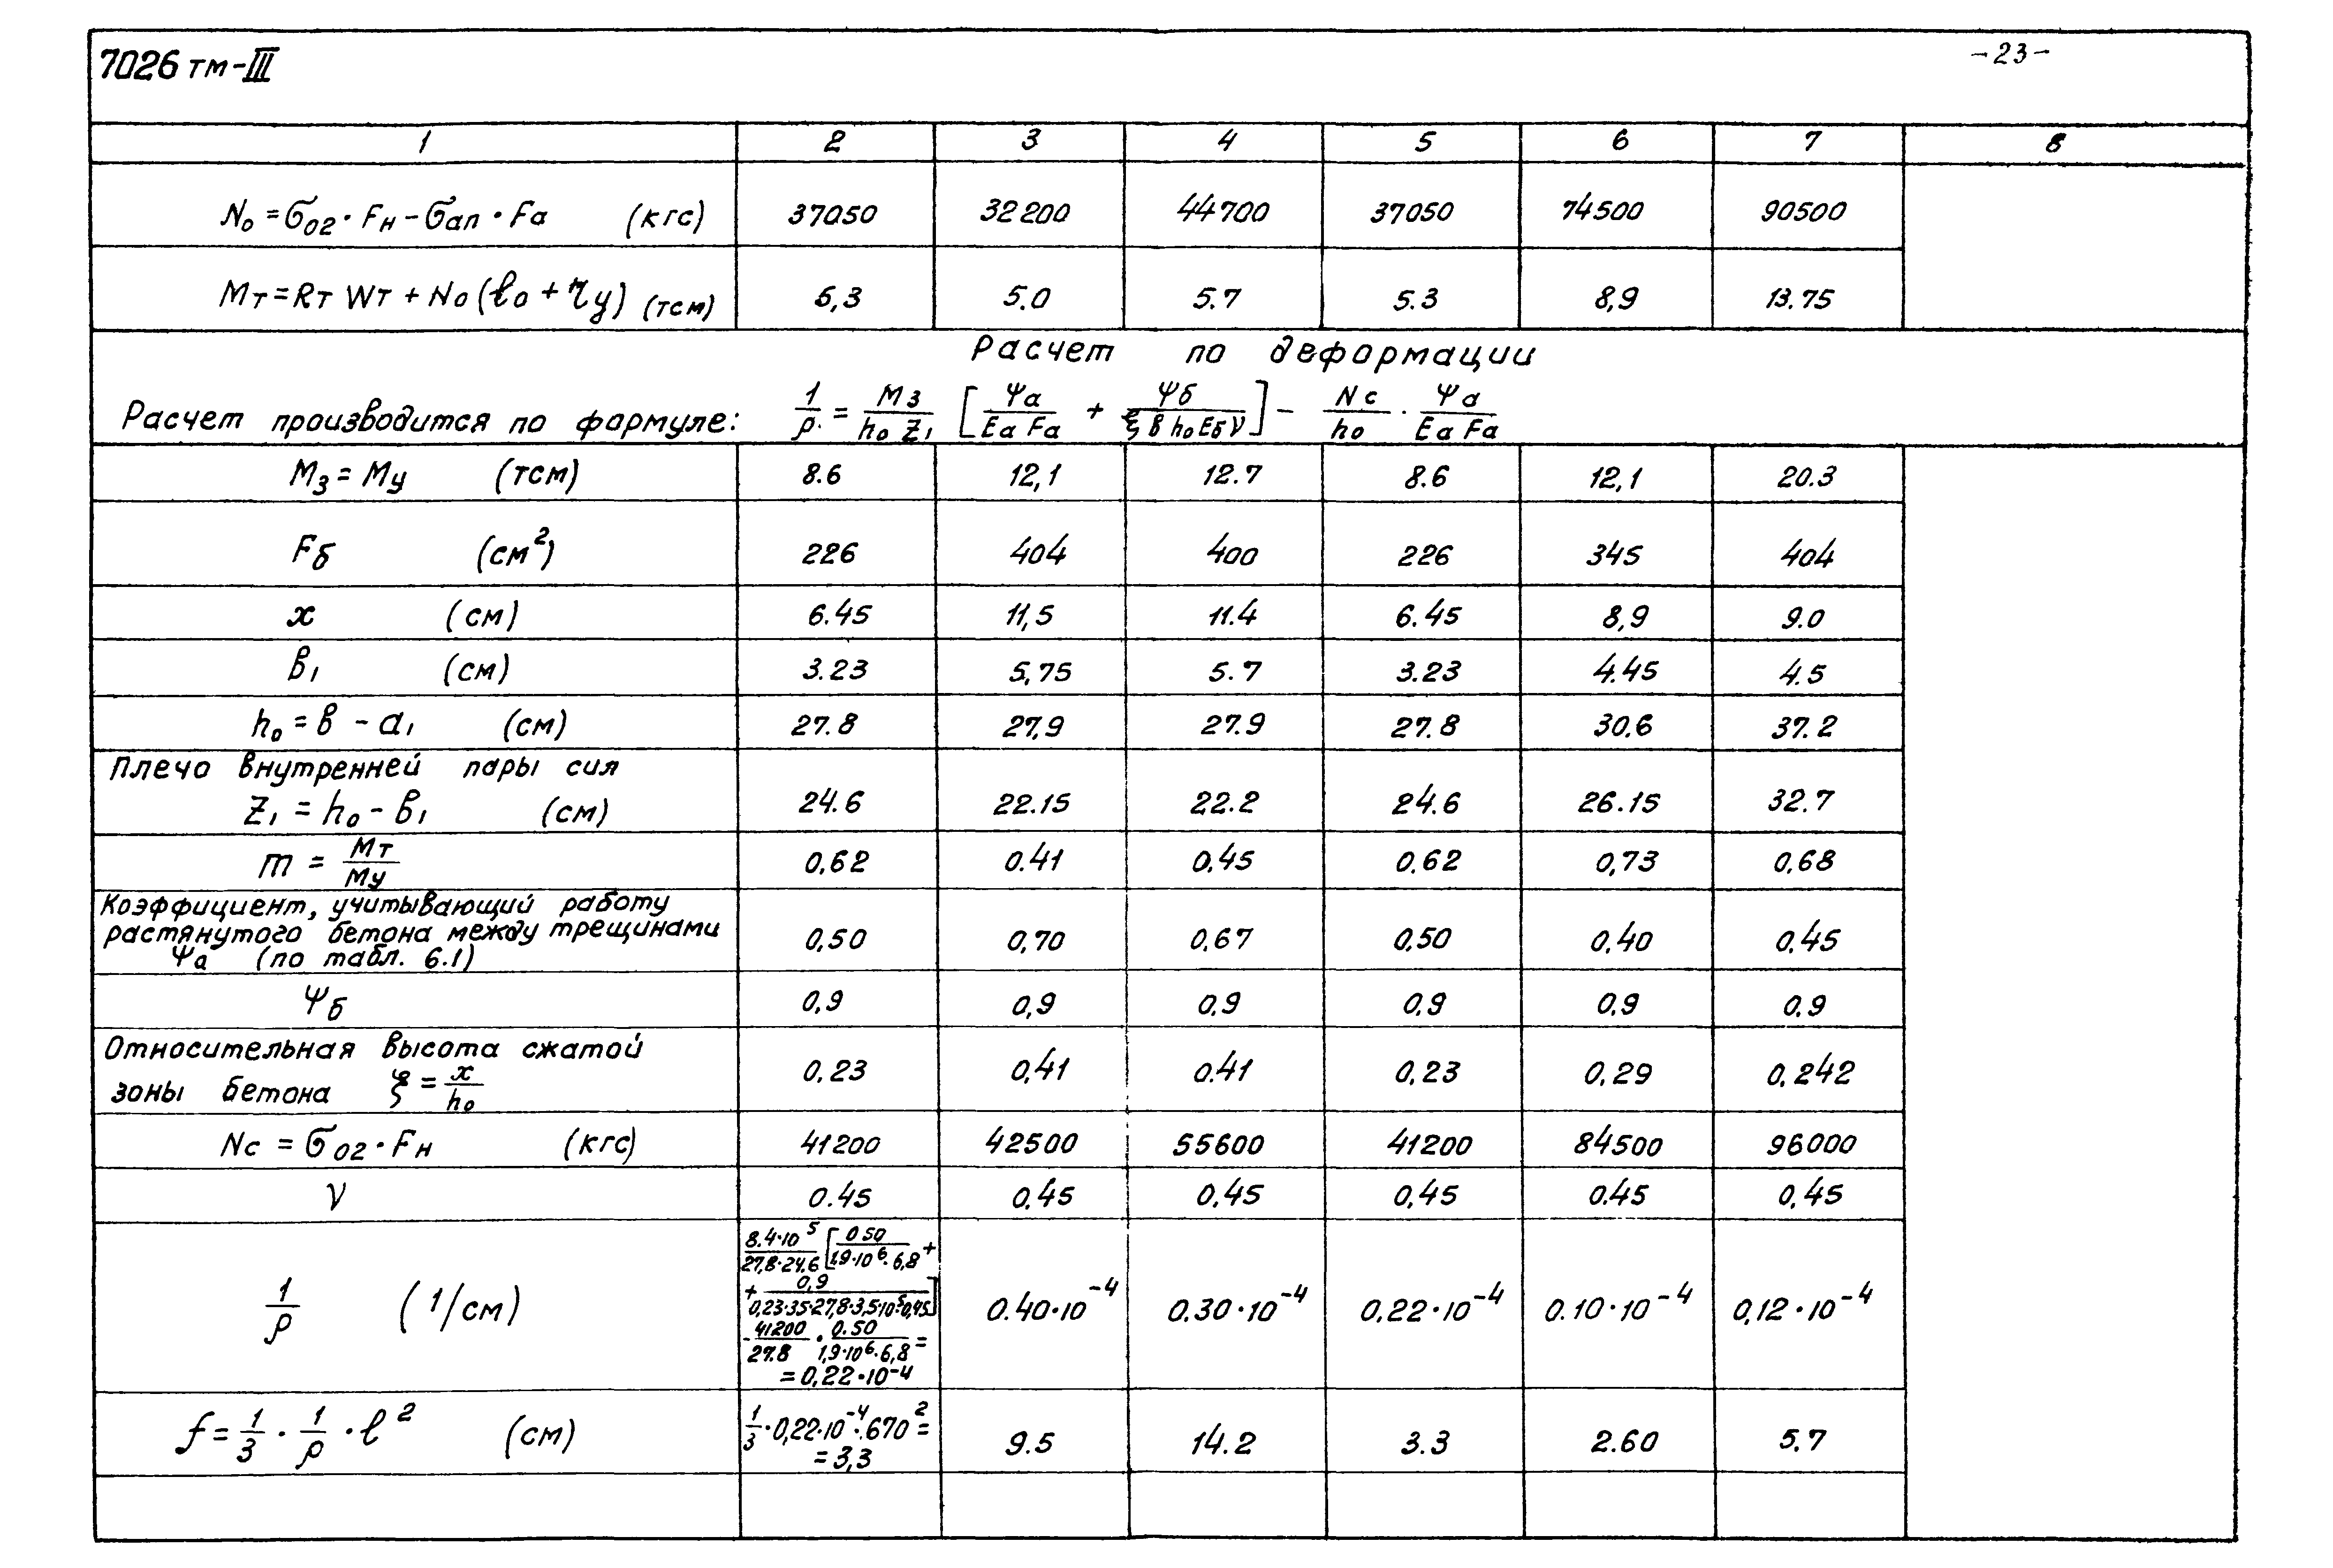 7026 тм-III
-23-
1 2 3 4 5 6 7 8
N₀ = σ₀₂ · Fн - σап · Fа (кгс) 37050 32200 44700 37050 74500 90500
Mт = Rт Wт + N₀ (ℓ₀ + ryу) (тсм) 5,3 5.0 5.7 5.3 8,9 13.75
Расчет по деформации
Расчет производится по формуле: 1/ρ = Mз/(h₀ Z₁) [Ψа/(Eа Fа) + Ψб/(ξ в h₀ Eб ν)] - Nс/h₀ · Ψа/(Eа Fа)
Mз = Mу (тсм) 8.6 12,1 12.7 8.6 12,1 20.3
Fб (см²) 226 404 400 226 345 404
x (см) 6.45 11,5 11.4 6.45 8,9 9.0
в₁ (см) 3.23 5,75 5.7 3.23 4.45 4.5
h₀ = в - а₁ (см) 27.8 27,9 27.9 27.8 30.6 37.2
Плечо внутренней пары сил
Z₁ = h₀ - в₁ (см) 24.6 22.15 22.2 24.6 26.15 32.7
m = Mт/Mу 0,62 0.41 0,45 0.62 0,73 0,68
Коэффициент, учитывающий работу
растянутого бетона между трещинами 0,50 0,70 0,67 0.50 0,40 0,45
Ψа (по табл. 6.1)
Ψб 0,9 0,9 0.9 0.9 0.9 0.9
Относительная высота сжатой
зоны бетона ξ = x/h₀ 0,23 0,41 0.41 0,23 0,29 0,242
Nс = σ₀₂ · Fн (кгс) 41200 42500 55600 41200 84500 96000
ν 0.45 0,45 0,45 0,45 0.45 0,45
1/ρ (1/см) 8.4·10⁵/(27,8·24,6) [0 50/(1.9·10⁶·6,8) +
+ 0,9/(0,23·35·27,8·3,5·10⁵·0,45)]
- 41200/27.8 · 0.50/(1,9·10⁶·6,8) =
= 0,22·10⁻⁴ 0.40·10⁻⁴ 0.30·10⁻⁴ 0,22·10⁻⁴ 0.10·10⁻⁴ 0,12·10⁻⁴
f = 1/3 · 1/ρ · ℓ² (см) 1/3 · 0,22·10⁻⁴·670² =
= 3,3 9.5 14.2 3.3 2.60 5,7